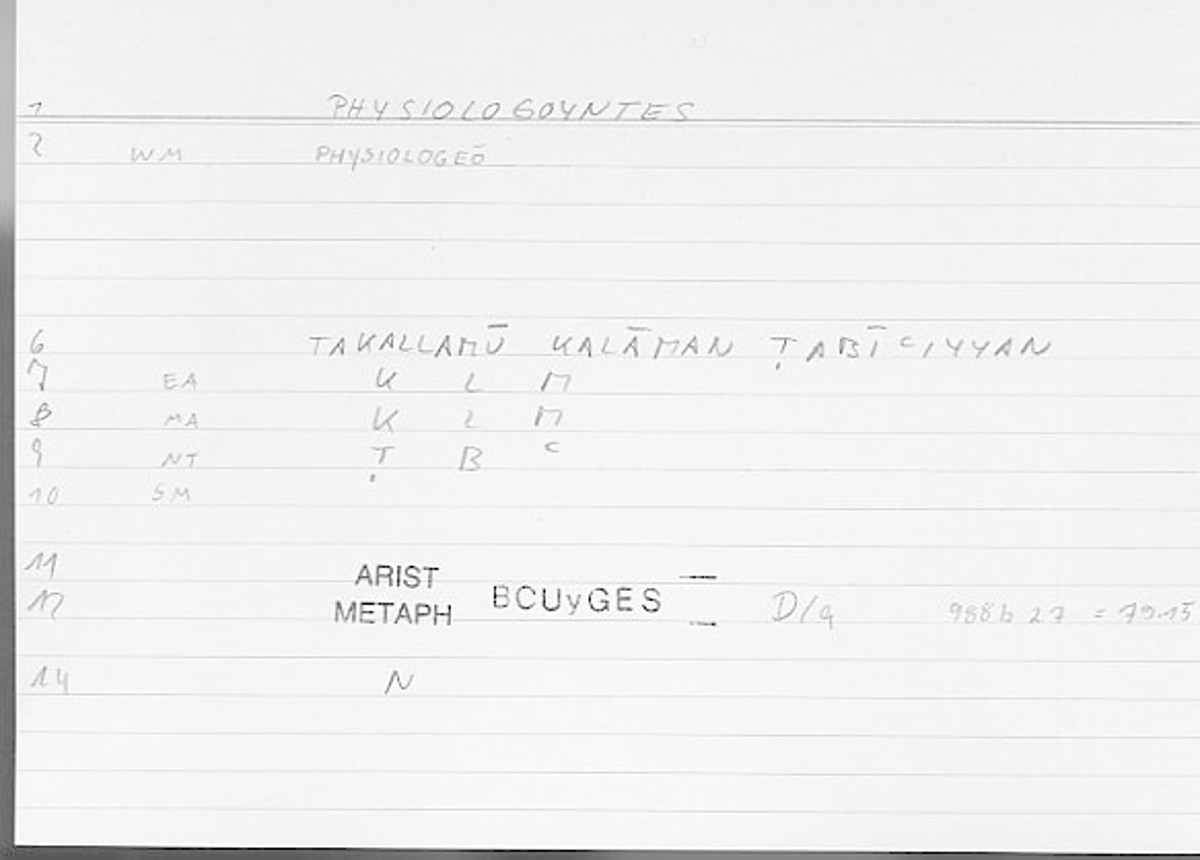 1 PHYSIOLOGOYNTES
2 WM PHYSIOLOGEŌ
6 TAKALLAMŪ KALĀMAN ṬABĪʿIYYAN
7 EA K L M
8 MA K L M
9 NT Ṭ B ʿ
10 SM
11 ARIST
12 METAPH BCUyGES D/a 988b 27 = 79.15
14 N